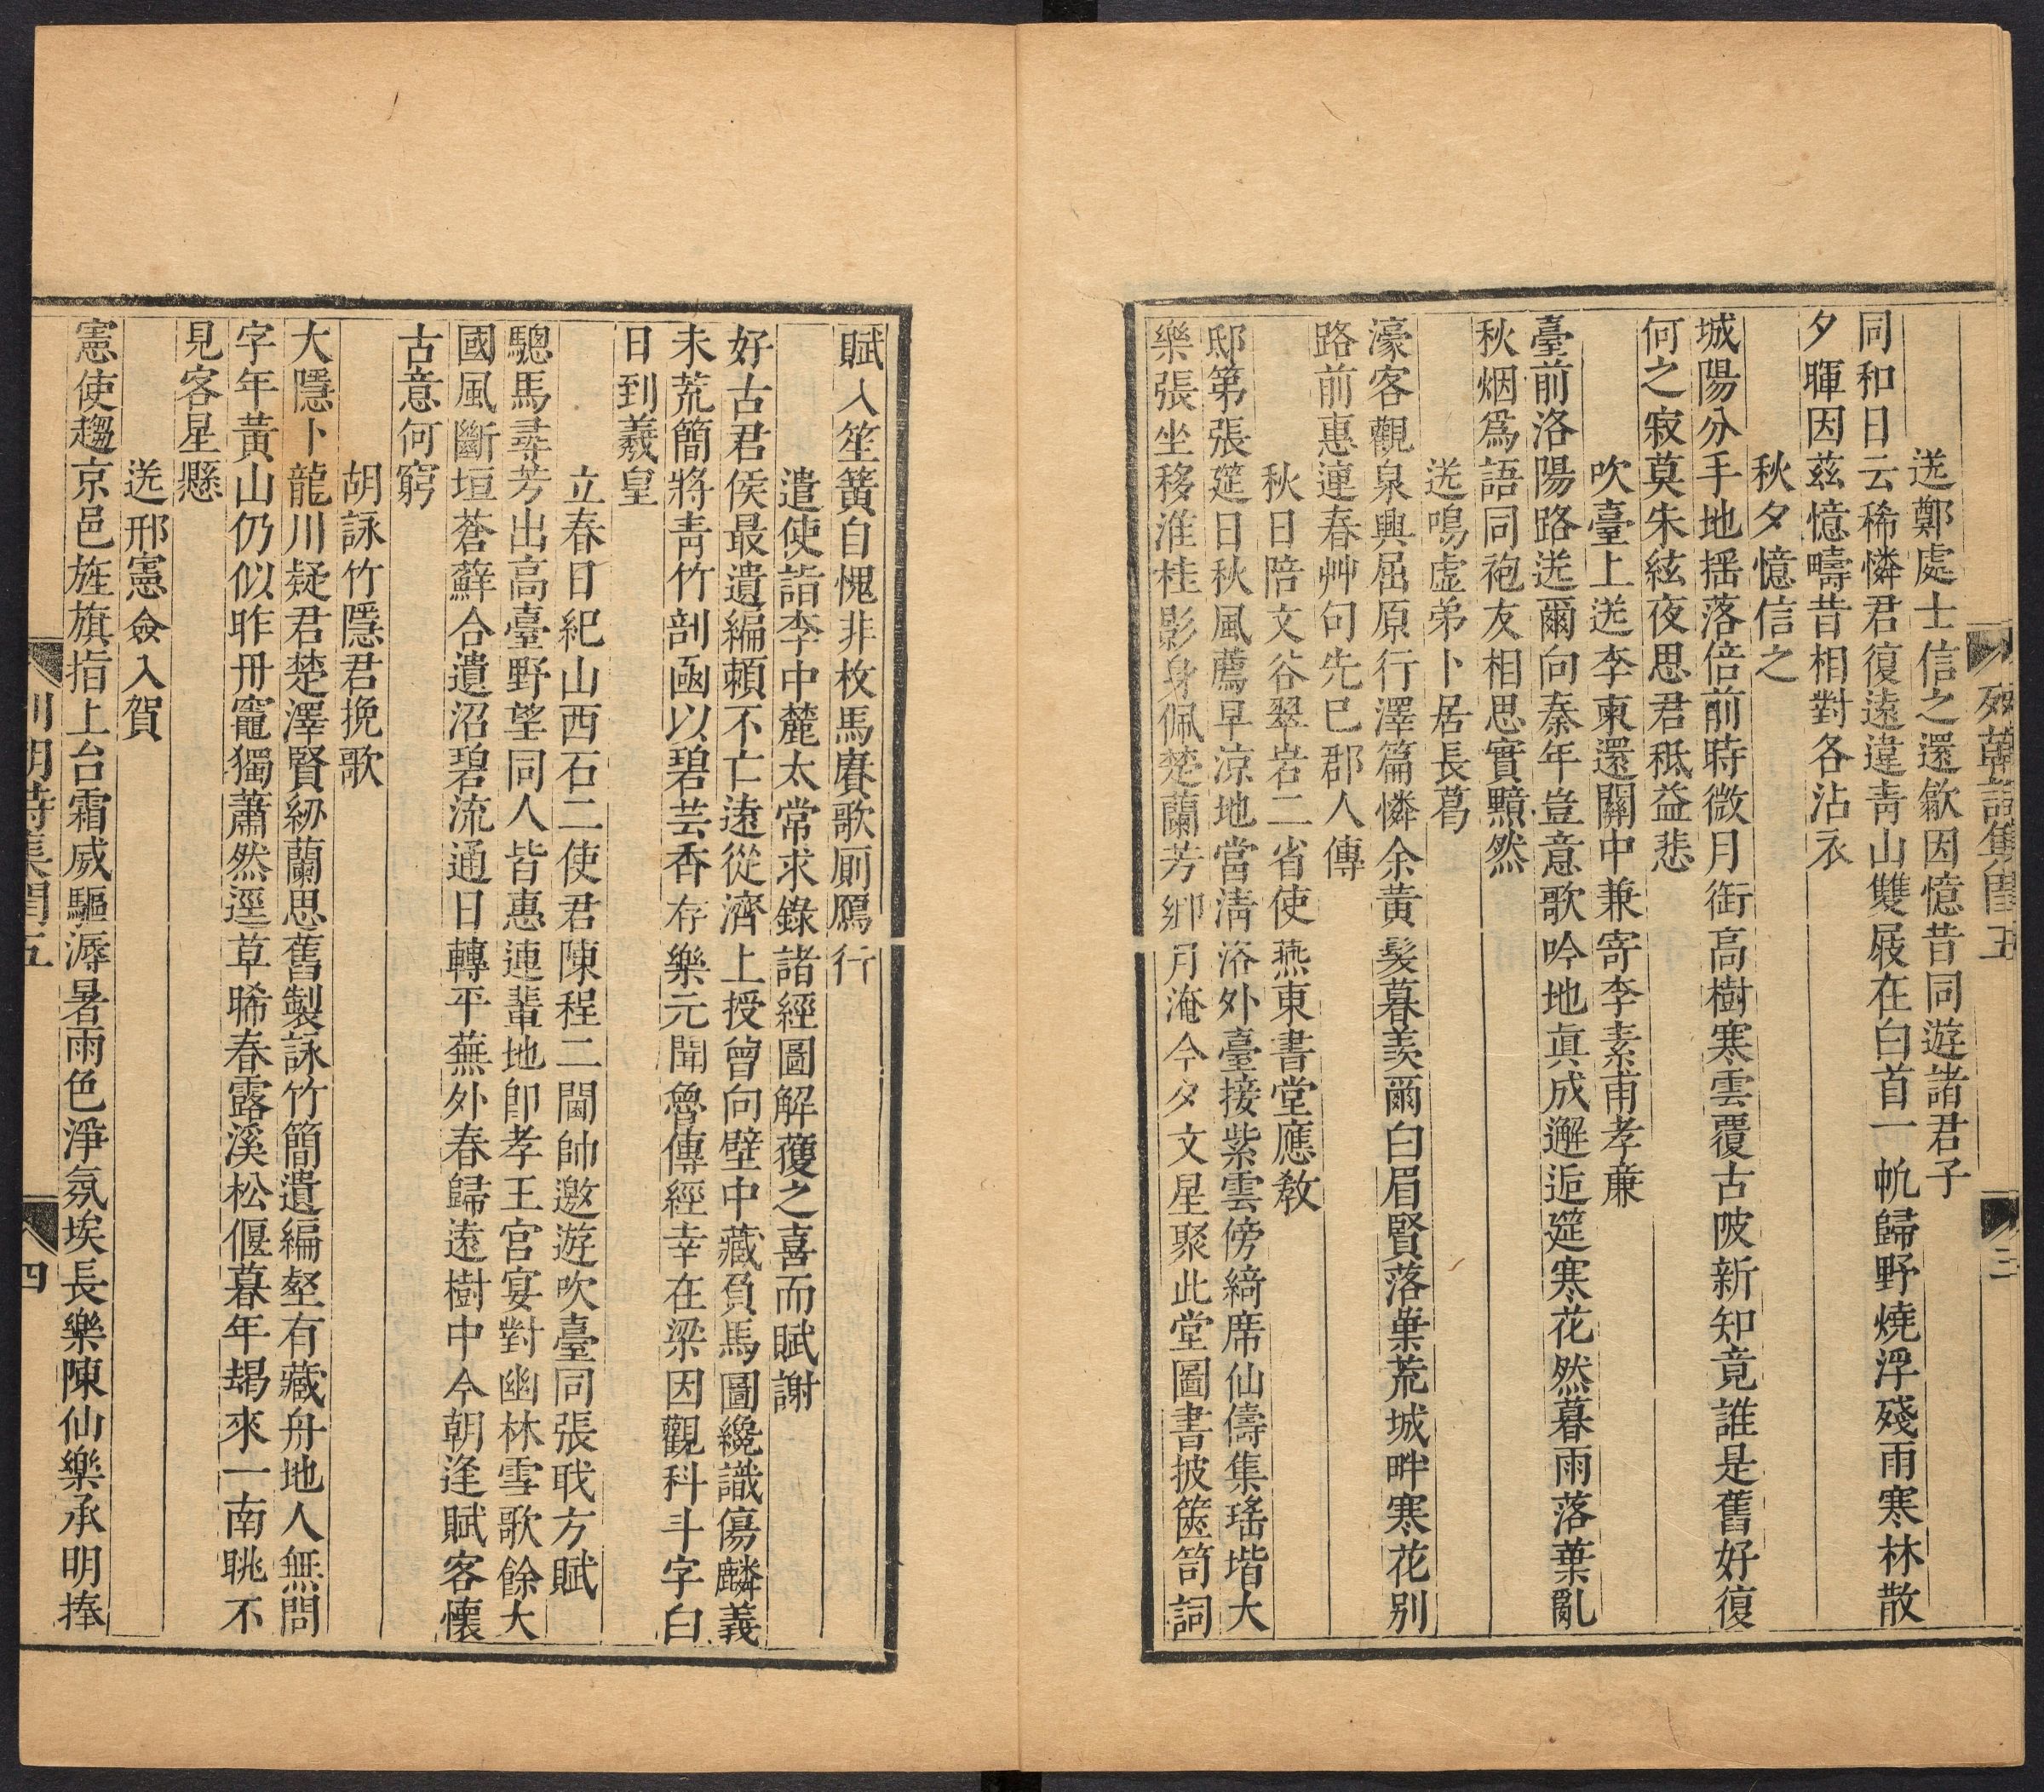 送鄭處士信之還歙因憶昔同遊諸君子
同和日云稀憐君復遠違靑山雙屐在白首一帆歸野燒浮殘雨寒林散
夕暉因茲憶疇昔相對各沾衣
秋夕憶信之
城陽分手地揺落倍前時微月銜高樹寒雲覆古陂新知竟誰是舊好復
何之寂莫朱絃夜思君秪益悲
吹臺上送李東還關中兼寄李素甫孝亷
臺前洛陽路送爾向秦年豈意歌吟地眞成邂逅筵寒花然暮雨落葉亂
秋烟爲語同袍友相思實黯然
送鳴虛弟卜居長葛
濠客觀泉興屈原行澤篇憐余黄髮暮羡爾白眉賢落葉荒城畔寒花别
路前惠連春艸句先已郡人傳
秋日陪文谷翠岩二省使燕東書堂應教
邸第張筵日秋風薦早凉地當淸洛外臺接紫雲傍綺席仙儔集瑤堦大
樂張坐移淮桂影身佩楚蘭芳鄉月淹今夕文星聚此堂圖書披篋笥詞
賦入笙簧自愧非枚馬賡歌厠鴈行
遣使詣李中麓太常求錄諸經圖解獲之喜而賦謝
好古君侯最遺編頼不亡遠從濟上授曾向壁中藏負馬圖纔識傷麟義
未荒簡將靑竹剖函以碧芸香存樂元聞魯傳經幸在梁因觀科斗字白
日到羲皇
立春日紀山西石二使君陳程二閫帥邀遊吹臺同張戝方賦
驄馬尋芳出高臺野望同人皆惠連輩地卽孝王宮宴對幽林雪歌餘大
國風斷垣蒼蘚合遺沼碧流通日轉平蕪外春歸遠樹中今朝逢賦客懷
古意何窮
胡詠竹隱君挽歌
大隱卜龍川疑君楚澤賢紉蘭思舊製詠竹簡遺編壑有藏舟地人無問
字年黃山仍似昨丹竈獨蕭然逕草晞春露溪松偃暮年朅來一南眺不
見客星懸
送邢憲僉入賀
憲使趨京邑旌旗指上台霜威驅溽暑雨色淨氛埃長樂陳仙樂承明捧